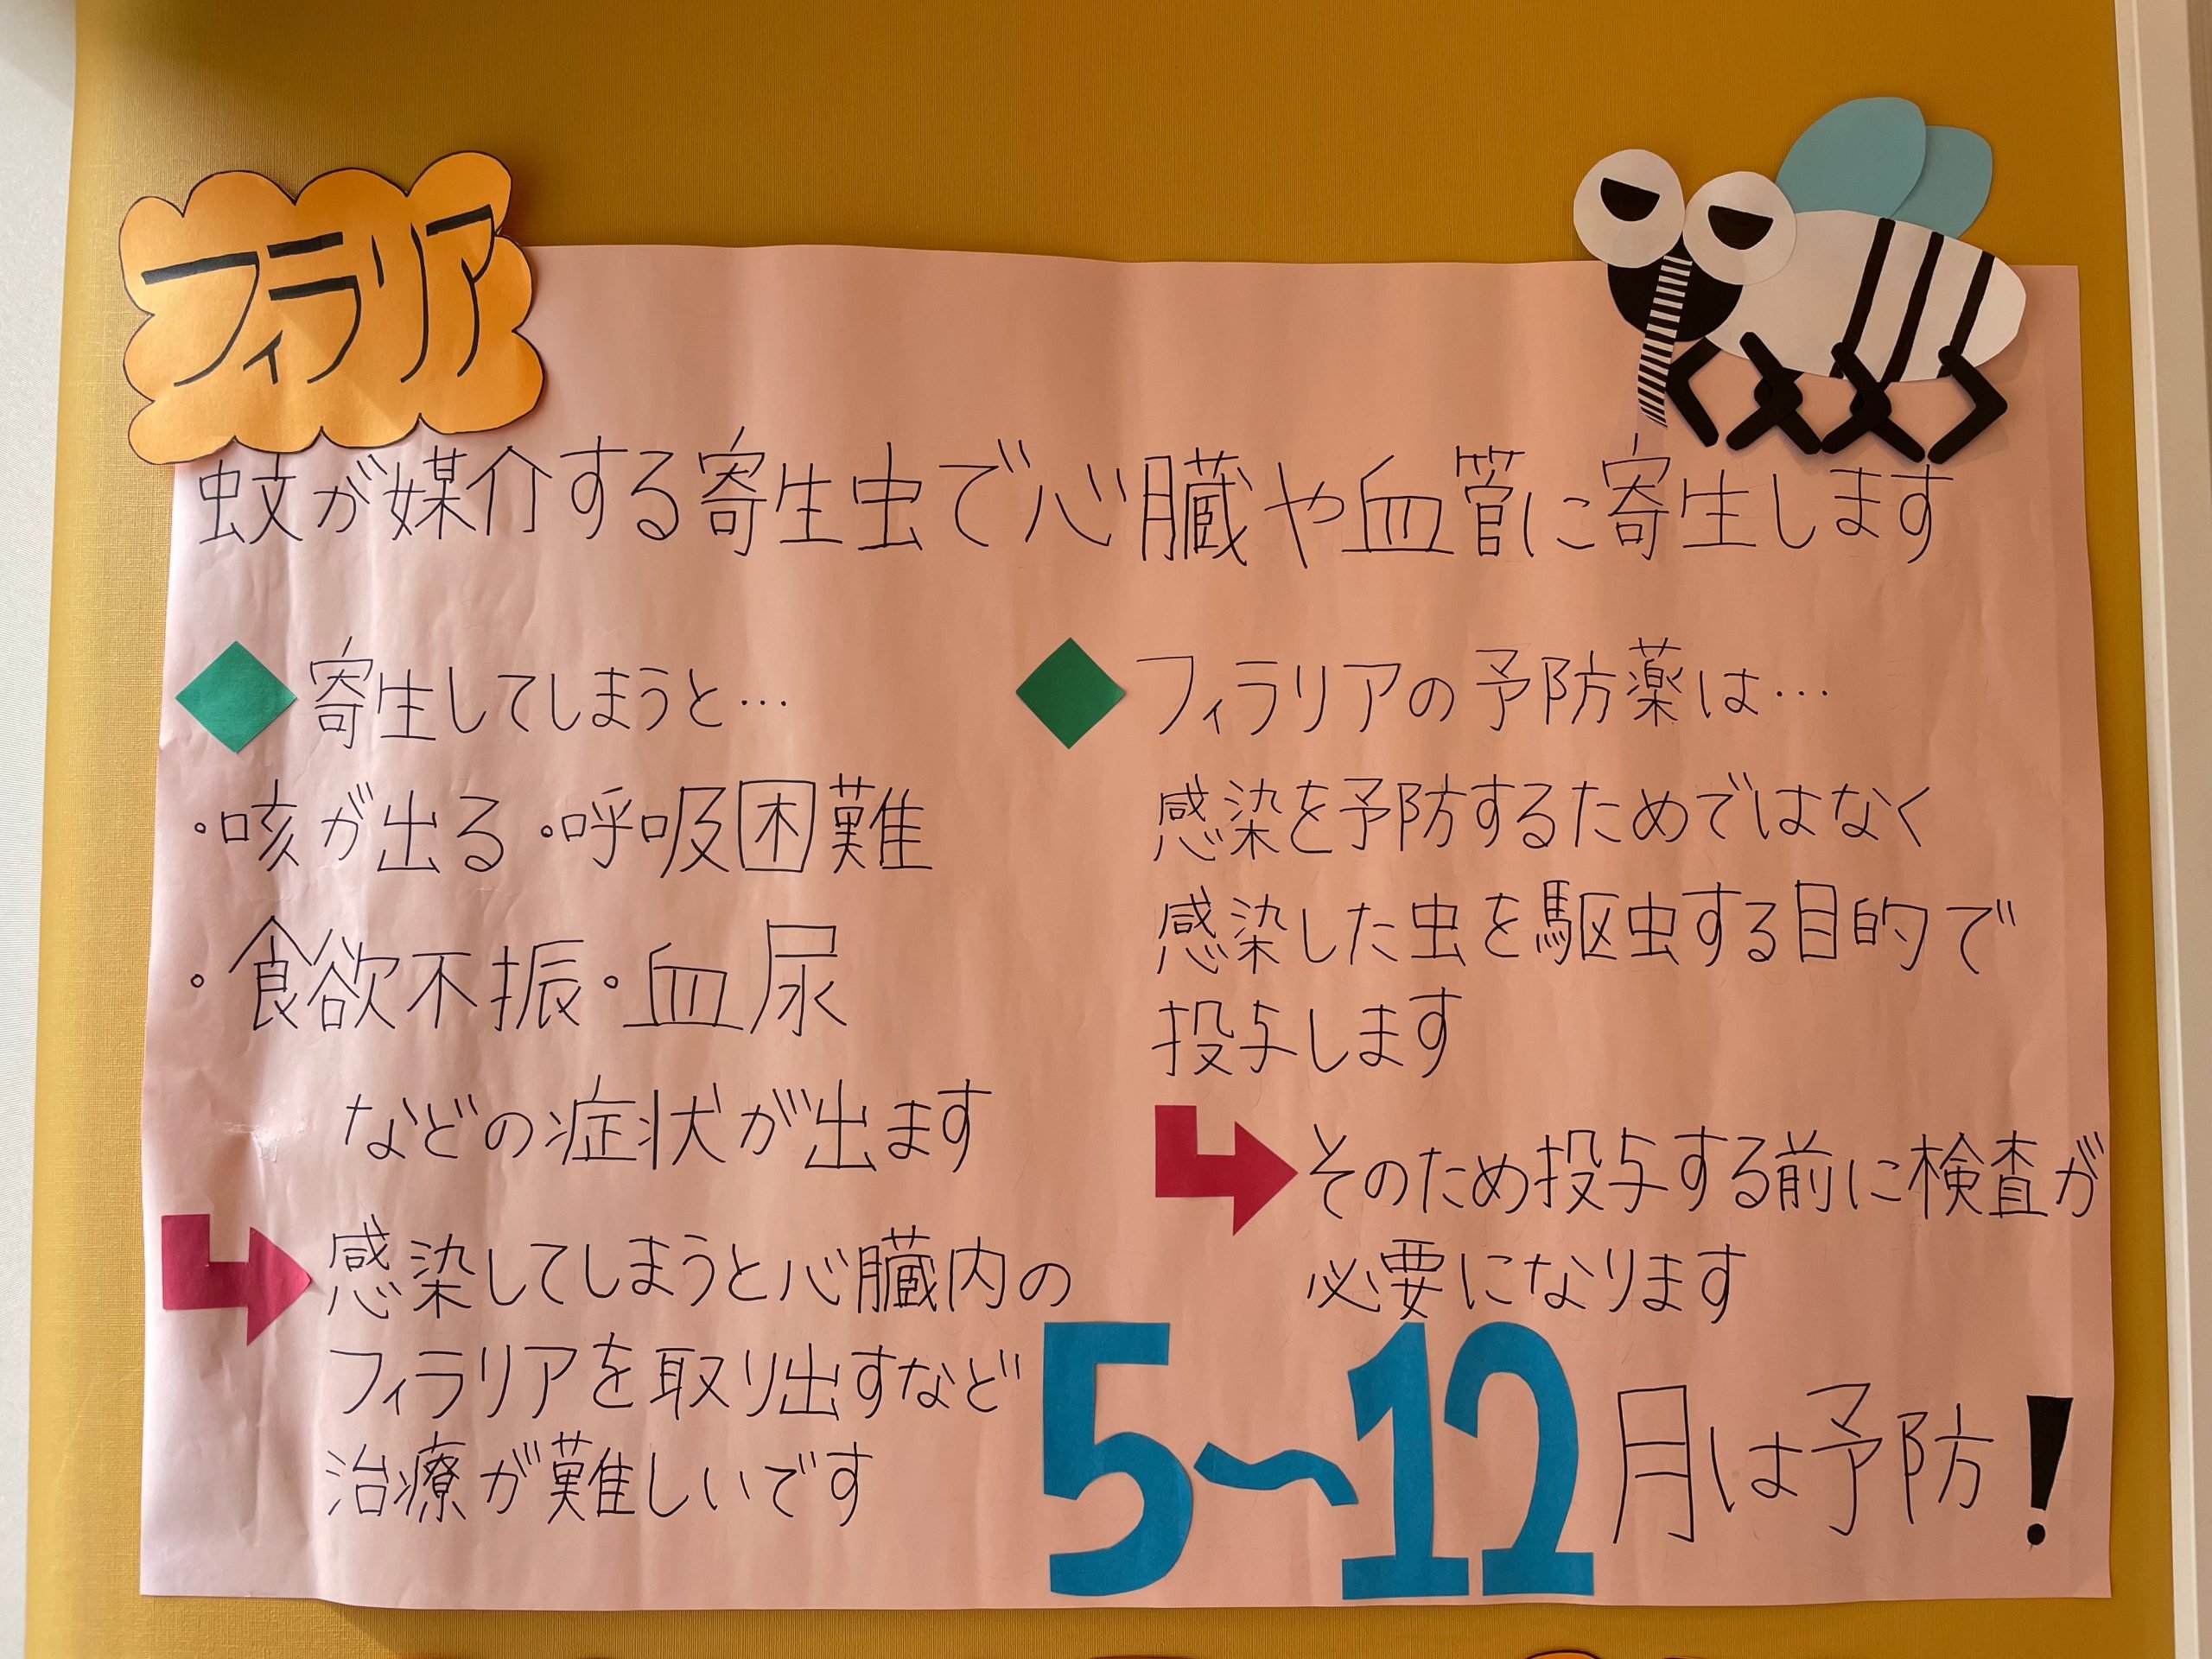 フィラリア
蚊が媒介する寄生虫で心臓や血管に寄生します
寄生してしまうと…
・咳が出る・呼吸困難
・食欲不振・血尿
などの症状が出ます
感染してしまうと心臓内の
フィラリアを取り出すなど
治療が難しいです
フィラリアの予防薬は…
感染を予防するためではなく
感染した虫を駆虫する目的で
投与します
そのため投与する前に検査が
必要になります
5〜12月は予防!